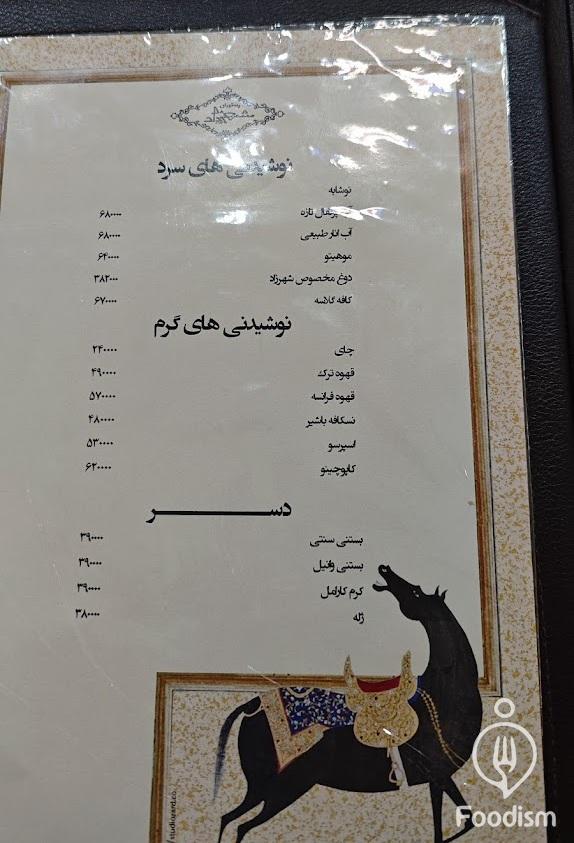 رستوران
شهرزاد
نوشیدنی های سرد
نوشابه
آب پرتقال تازه ۶۸۰۰۰۰
آب انار طبیعی ۶۸۰۰۰۰
موهیتو ۶۴۰۰۰۰
دوغ مخصوص شهرزاد ۳۸۲۰۰۰
کافه گلاسه ۶۷۰۰۰۰
نوشیدنی های گرم
چای ۲۴۰۰۰۰
قهوه ترک ۴۹۰۰۰۰
قهوه فرانسه ۵۷۰۰۰۰
نسکافه باشیر ۴۸۰۰۰۰
اسپرسو ۵۳۰۰۰۰
کاپوچینو ۶۲۰۰۰۰
دســـر
بستنی سنتی ۳۹۰۰۰۰
بستنی وانیل ۳۹۰۰۰۰
کرم کارامل ۳۹۰۰۰۰
ژله ۳۸۰۰۰۰
Foodism